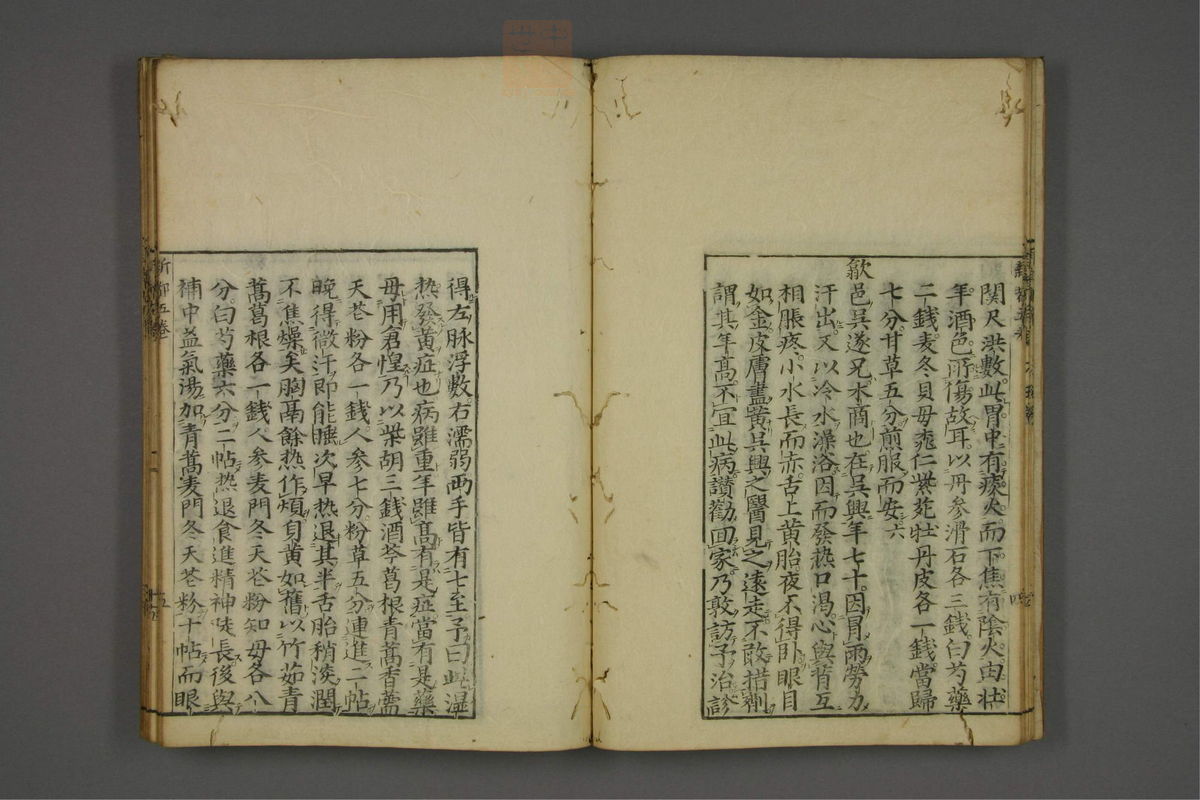 関尺洪數此胃中有瘀火而下焦有陰火由壮
年酒色所傷故耳以丹参滑石各三銭白芍藥
二銭麦冬貝母桃仁紫菀牡丹皮各一銭當歸
七分甘草五分煎服而安六
歙邑吳遂兄木商也在吳興年七十因冒雨勞力
汗出又以冷水澡浴因而發热口渇心與背互
相脹疼小水長而赤舌上黄胎夜不得卧眼目
如金皮膚盡黄吳興之醫見之遠走不敢措劑
謂其年髙不宜此病讃勸回家乃敦訪予治診
得左脉浮數右濡弱両手皆有七至予曰此濕
热發黄症也病雖重年雖髙有是症當有是藥
毋用倉惶乃以柴胡三銭酒芩葛根青蒿香薷
天花粉各一銭人参七分粉草五分連進二帖
晚得微汗即能睡次早热退其半舌胎稍淡潤
不焦燥矣胸膈餘热作煩身黄如舊以竹茹青
蒿葛根各一銭人参麦門冬天花粉知母各八
分白芍藥六分二帖热退食進精神徒長後與
補中益氣湯加青蒿麦門冬天花粉十帖而眼